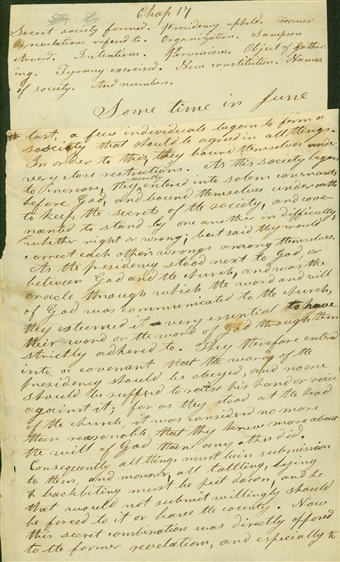 Chap 17
Secret society formed. Presidency upheld. Former
revelations refered to. Organization. Sampson
Avard. Intentions. Pervenions. Object of gather-
ing. Tyrany exercised. New constitution. Names
of society. And number.
Some time in June
last, a few individuals began to form a
society that should be agreed in all things.
In order to this, they bound themselves under
very close restrictions. As this society began
to increase, they entered into solemn covenants
before God, and bound themselves under oath
to keep the secrets of the society, and cove-
nanted to stand by one another in difficulty
whether right or wrong, but said they would
correct each others wrongs among themselves.
As the presidency stood next to God, or
between God and the church, and was the
oracle through which the word and will
of God was communicated to the church,
they esteemed it very essential to have
their word or the word of God through them
strictly adhered to. They therefore entered
into a covenant that the word of the
presidency should be obeyed, and no one
should be suffered to raise his hand or voice
against it; for as they stood at the head
of the church, it was considered no more
than reasonable that they knew more about
the will of God than any others did.
Consequently all things must be in submission
to them, and moreover all tattling, lying
& backbiting must be put down, and he
that would not submit willingly should
be forced to it or leave the county. Now
this secret combination was directly opposed
to the former revelations, and especially to